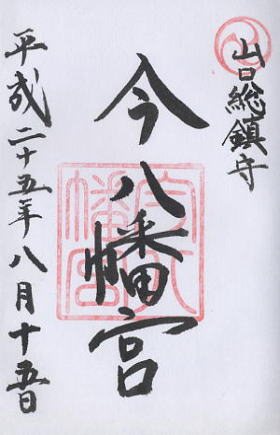 山口総鎮守
今八幡宮
平成二十五年八月十五日